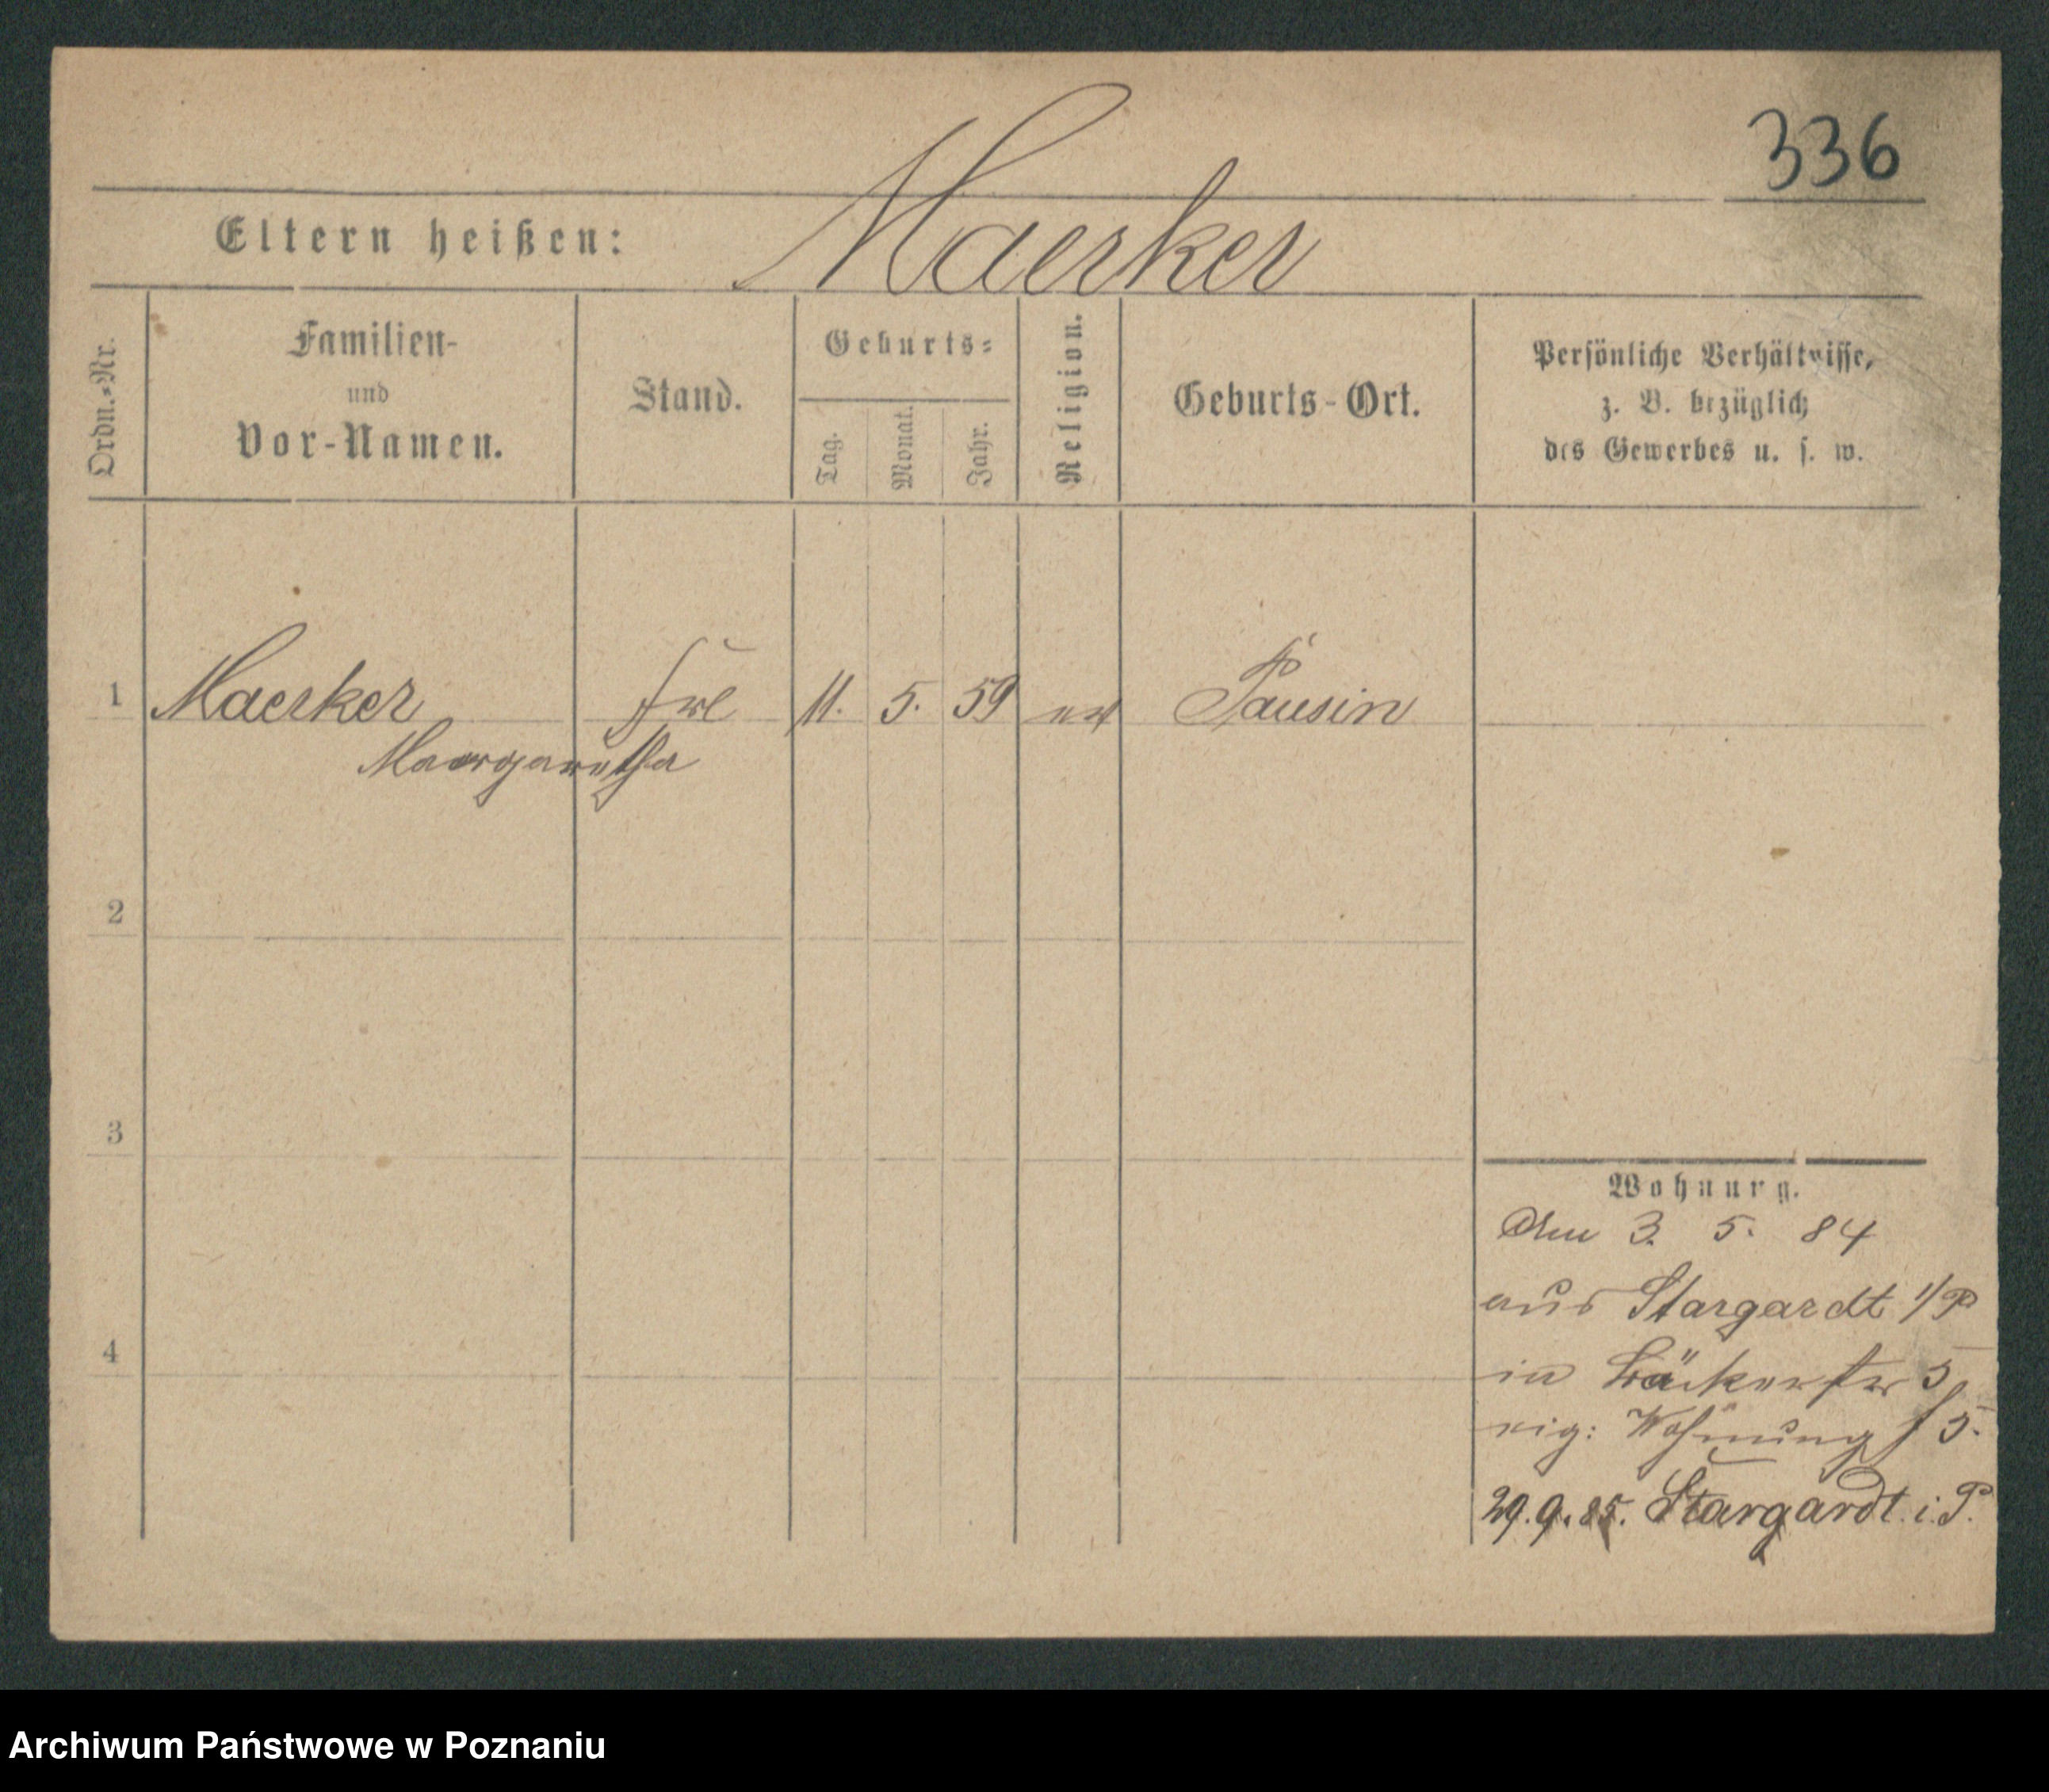 336
Eltern heißen: Maerker
Ordn.-Nr.
Familien-
und
Vor-Namen.
Stand.
Geburts-
Tag.
Monat.
Jahr.
Religion.
Geburts-Ort.
Persönliche Verhältnisse,
z. B. bezüglich
des Gewerbes u. s. w.
1 Maerker Frl 11. 5. 59 ev Pausin
Margaretha
2
3
4
Wohnung.
Am 3. 5. 84
aus Stargardt i/P
in Bäckerstr 5
eig: Wohnung 5.
29.9.85. Stargardt i. P.
Archiwum Państwowe w Poznaniu